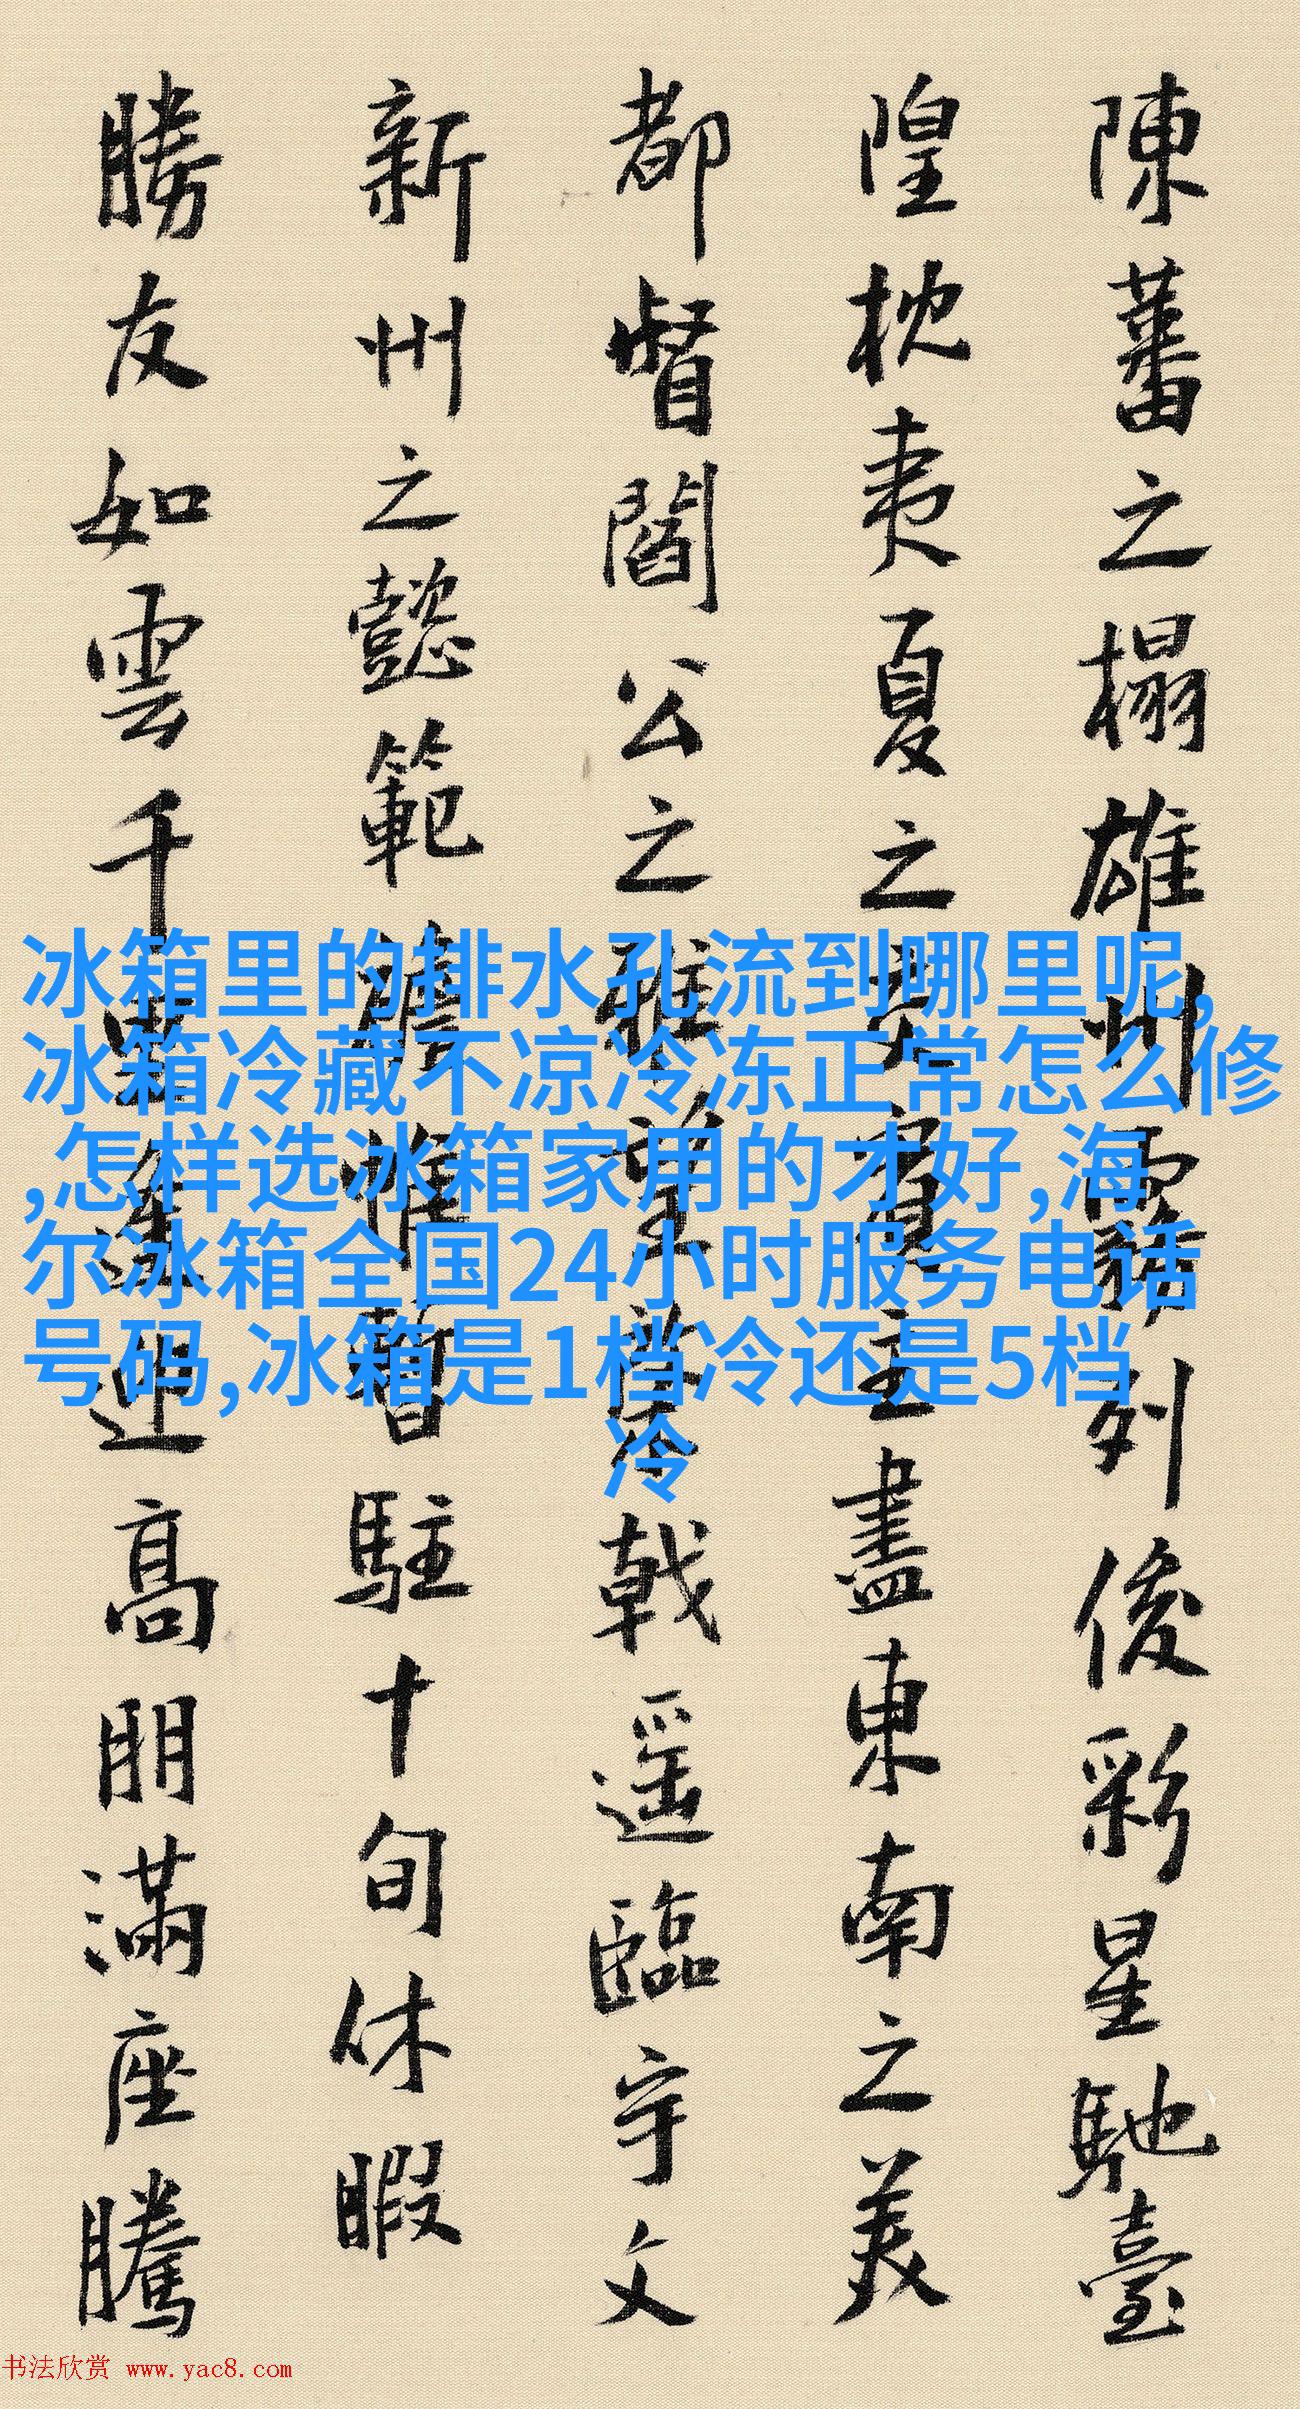 陳蕃之榻雄州霧列俊彩星馳臺
隍枕夷夏之交賓主盡東南之美
都督閻公之雅望棨戟遥臨宇文
新州之懿範襜帷暫駐十旬休暇
勝友如雲千里逢迎髙朋滿座騰
冰箱里的排水孔流到哪里呢,
冰箱冷藏不凉冷冻正常怎么修
,怎样选冰箱家用的才好,海
尔冰箱全国24小时服务电话
号码,冰箱是1档冷还是5档
冷
书法欣赏 www.yac8.com